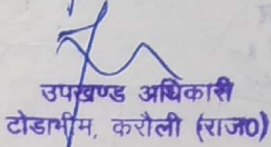 उपखण्ड अधिकारी
टोडाभीम, करौली (राज0)